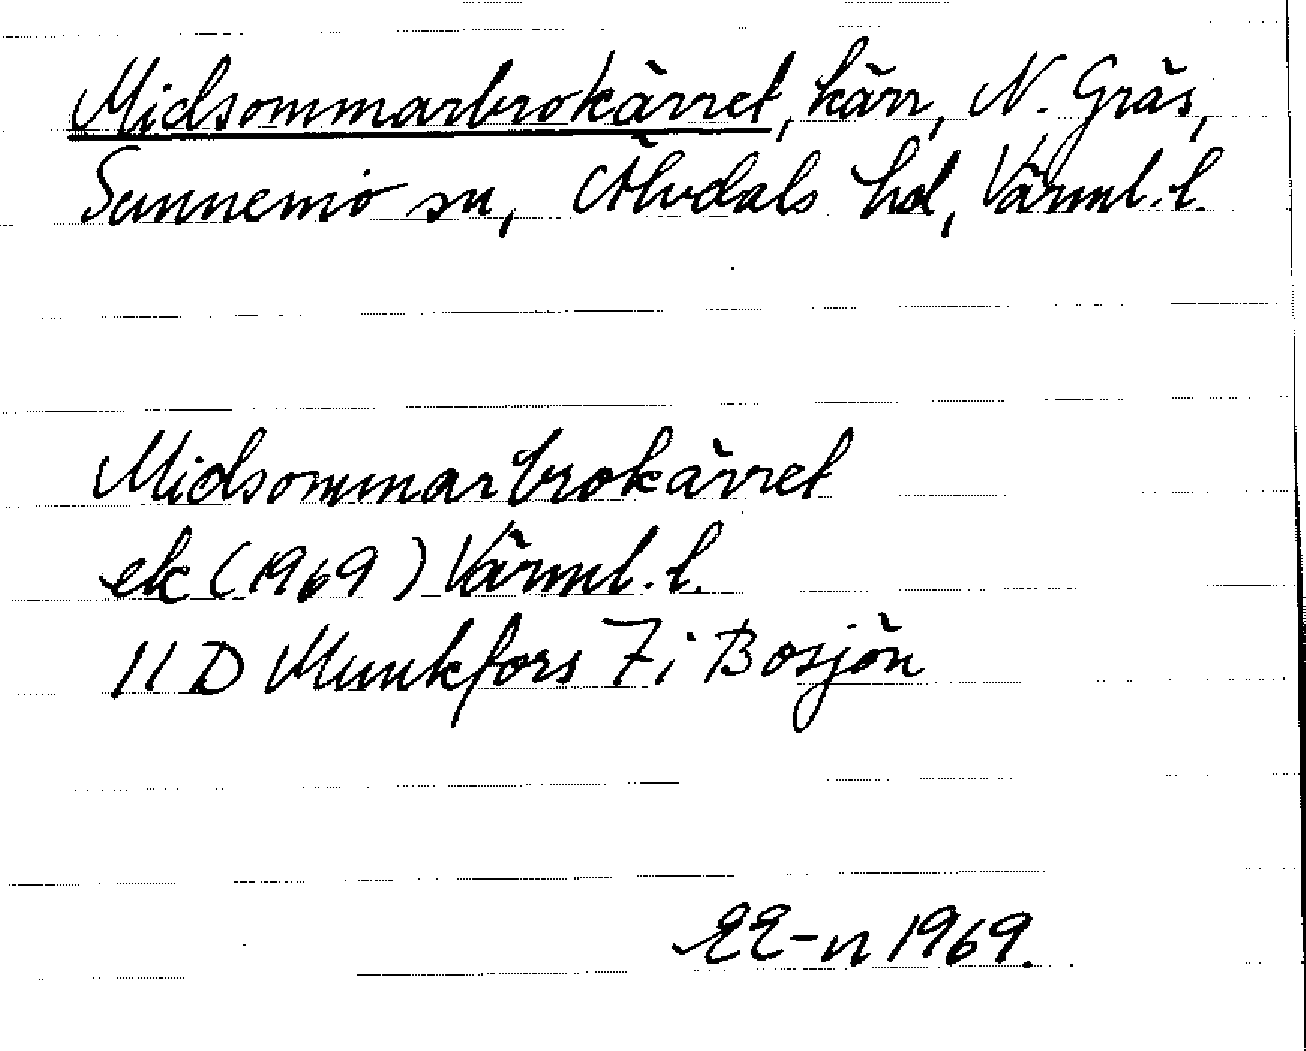 Midsommarbrokärret, kärr, N. Gräs,
Sunnemo sn, Älvdals hd, Värml. l.
Midsommarbrokärret
ek (1969) Värml. l.
11 D Munkfors 7i Bosjön
EE-n 1969.